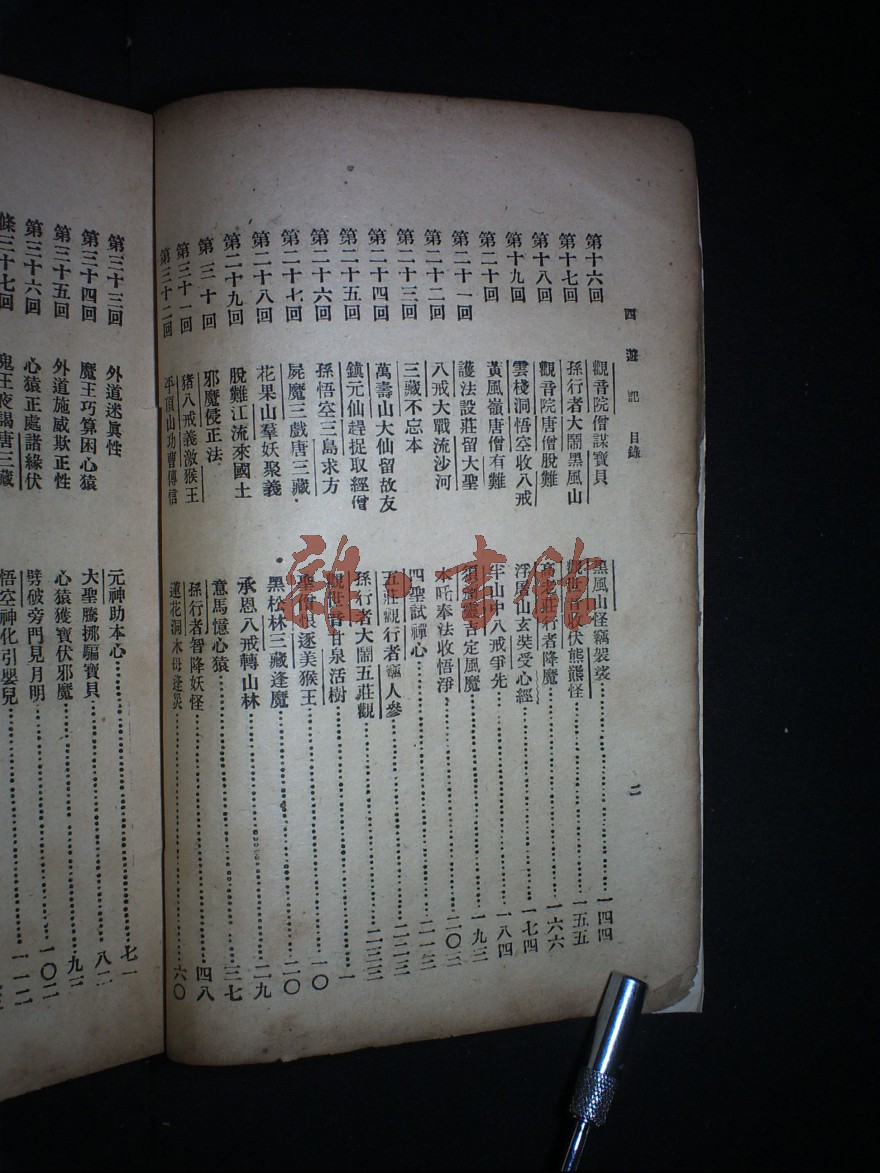 西遊記 目錄 二
第十六回 觀音院僧謀寶貝 黑風山怪竊袈裟 一四四
第十七回 孫行者大鬧黑風山 觀世音收伏熊羆怪 一五五
第十八回 觀音院唐僧脫難 高老莊行者降魔 一六六
第十九回 雲棧洞悟空收八戒 浮屠山玄奘受心經 一七四
第二十回 黃風嶺唐僧有難 半山中八戒爭先 一八四
第二十一回 護法設莊留大聖 須彌靈吉定風魔 一九三
第二十二回 八戒大戰流沙河 木吒奉法收悟淨 二〇三
第二十三回 三藏不忘本 四聖試禪心 二一三
第二十四回 萬壽山大仙留故友 五莊觀行者竊人參 二二三
第二十五回 鎮元仙趕捉取經僧 孫行者大鬧五莊觀 二三三
第二十六回 孫悟空三島求方 觀世音甘泉活樹 一
第二十七回 屍魔三戲唐三藏 聖僧恨逐美猴王 一〇
第二十八回 花果山羣妖聚義 黑松林三藏逢魔 二〇
第二十九回 脫難江流來國土 承恩八戒轉山林 二九
第三十回 邪魔侵正法 意馬憶心猿 三七
第三十一回 豬八戒義激猴王 孫行者智降妖怪 四八
第三十二回 平頂山功曹傳信 蓮花洞木母逢災 六〇
第三十三回 外道迷眞性 元神助本心 七一
第三十四回 魔王巧算困心猿 大聖騰挪騙寶貝 八二
第三十五回 外道施威欺正性 心猿獲寶伏邪魔 九二
第三十六回 心猿正處諸緣伏 劈破旁門見月明 一〇二
第三十七回 鬼王夜謁唐三藏 悟空神化引嬰兒 一一二
雜·書館